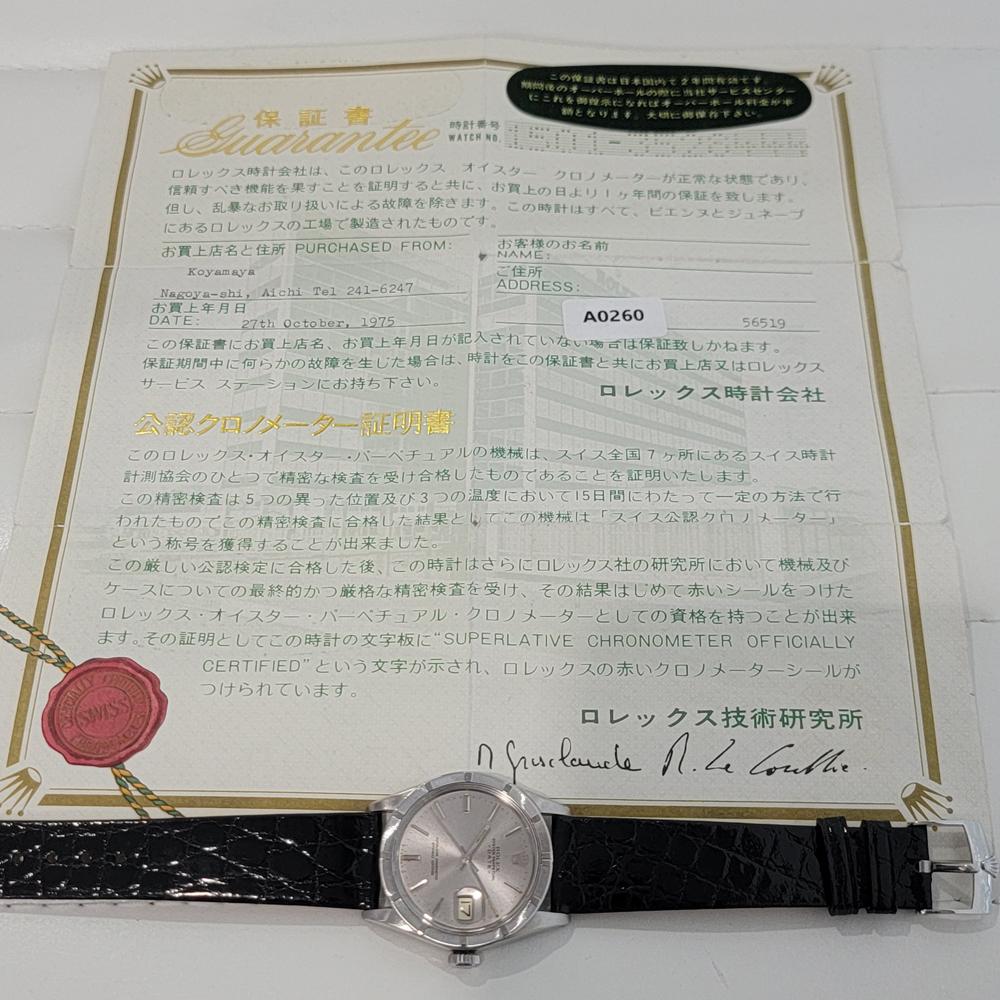 この保証書は日本国内で2年間有効です。
期間後のオーバーホールの際に当社サービスセンター
にこれを御提示になればオーバーホール料金が半
額となります。大切に御保存下さい。
保証書
Guarantee
時計番号
WATCH NO.
ロレックス時計会社は、このロレックス オイスター クロノメーターが正常な状態であり、
信頼すべき機能を果すことを証明すると共に、お買上の日より1ヶ年間の保証を致します。
但し、乱暴なお取り扱いによる故障を除きます。この時計はすべて、ビエンヌとジュネーブ
にあるロレックスの工場で製造されたものです。
お買上店名と住所 PURCHASED FROM:
Koyamaya
Nagoya-shi, Aichi Tel 241-6247
お買上年月日
DATE: 27th October, 1975
お客様のお名前
NAME:
ご住所
ADDRESS:
A0260
56519
この保証書にお買上店名、お買上年月日が記入されていない場合は保証致しかねます。
保証期間中に何らかの故障を生じた場合は、時計をこの保証書と共にお買上店又はロレックス
サービス ステーションにお持ち下さい。
ロレックス時計会社
公認クロノメーター証明書
このロレックス・オイスター・パーペチュアルの機械は、スイス全国7ヶ所にあるスイス時計
計測協会のひとつで精密な検査を受け合格したものであることを証明いたします。
この精密検査は5つの異った位置及び3つの温度において15日間にわたって一定の方法で行
われたものでこの精密検査に合格した結果としてこの機械は「スイス公認クロノメーター」
という称号を獲得することが出来ました。
この厳しい公認検定に合格した後、この時計はさらにロレックス社の研究所において機械及び
ケースについての最終的かつ厳格な精密検査を受け、その結果はじめて赤いシールをつけた
ロレックス・オイスター・パーペチュアル・クロノメーターとしての資格を持つことが出来
ます。その証明としてこの時計の文字板に“SUPERLATIVE CHRONOMETER OFFICIALLY
CERTIFIED”という文字が示され、ロレックスの赤いクロノメーターシールが
つけられています。
ロレックス技術研究所
SWISS
ROLEX
17